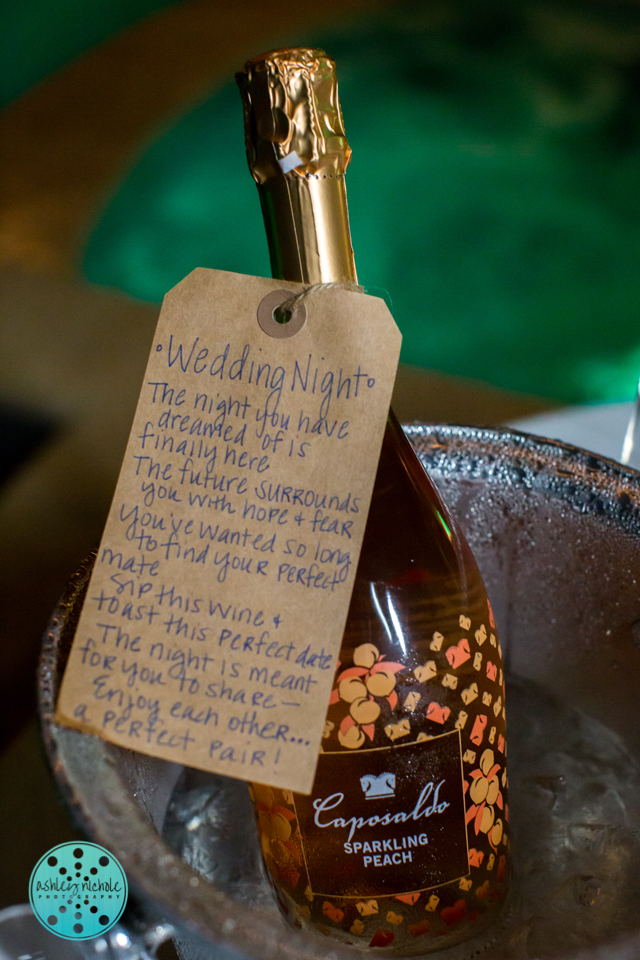 •Wedding Night•
The night you have
dreamed of is
finally here
The future surrounds
you with hope & fear
You've wanted so long
to find your perfect
mate
Sip this wine &
toast this perfect date
The night is meant
for you to share—
Enjoy each other...
a perfect pair!
Caposaldo
SPARKLING
PEACH
ashley nichole
PHOTOGRAPHY